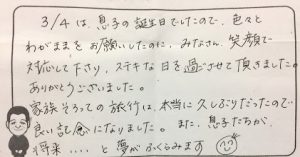 3/4は、息子の誕生日でしたので、色々と
わがままをお願いしたのに、みなさん、笑顔で
対応して下さり、ステキな日を過ごさせて頂きました。
ありがとうございました。
家族そろっての旅行は、本当に久しぶりだったので
良い記念になりました。また、息子たちが、
将来....と夢がふくらみます